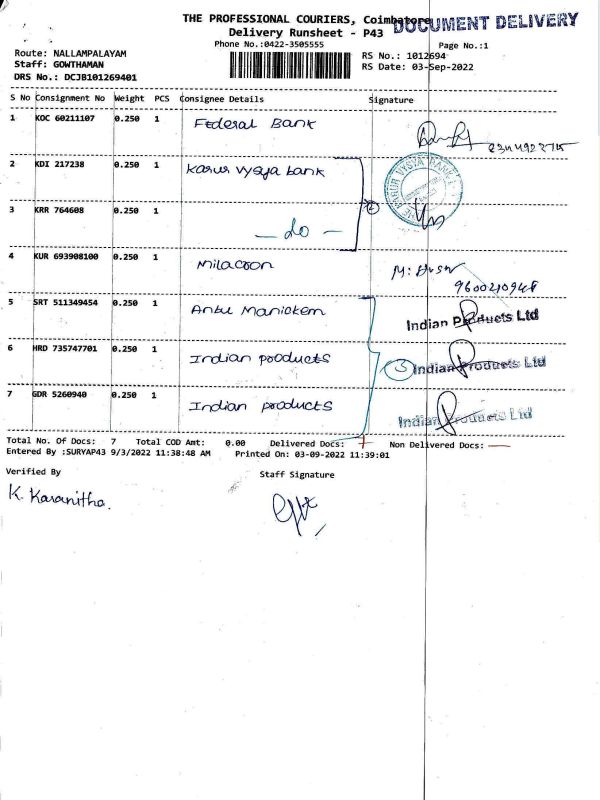 THE PROFESSIONAL COURIERS, Coimbatore
DOCUMENT DELIVERY
Delivery Runsheet - P43
Phone No.:0422-3505555
Page No.:1
Route: NALLAMPALAYAM
Staff: GOWTHAMAN
DRS No.: DCJB101269401
RS No.: 1012694
RS Date: 03-Sep-2022
S No Consignment No Weight PCS Consignee Details Signature
1 KOC 60211107 0.250 1 Federal Bank
2 KDI 217238 0.250 1 Karur vysya bank
3 KRR 764608 0.250 1 — do — 2
4 KUR 693908100 0.250 1 Milacoon
5 SRT 511349454 0.250 1 Anbu Manickem Indian Products Ltd
6 HRD 735747701 0.250 1 Indian products 3 Indian Products Ltd
7 GDR 5260940 0.250 1 Indian products Indian Products Ltd
Total No. Of Docs: 7 Total COD Amt: 0.00 Delivered Docs: 7 Non Delivered Docs: —
Entered By :SURYAP43 9/3/2022 11:38:48 AM Printed On: 03-09-2022 11:39:01
Verified By Staff Signature
K. Karanitha.